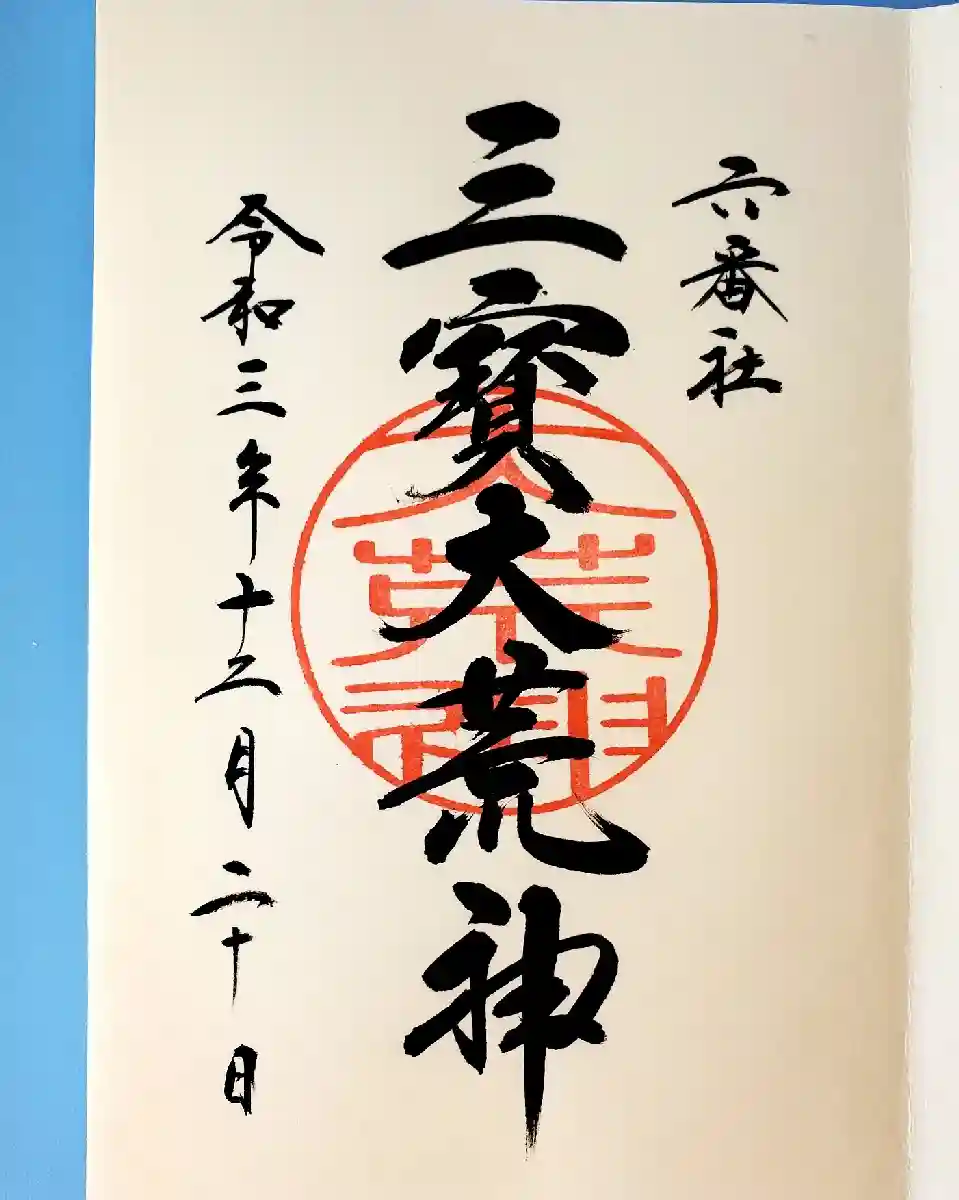 六番社
三寳大荒神
令和三年十二月二十日
大荒神